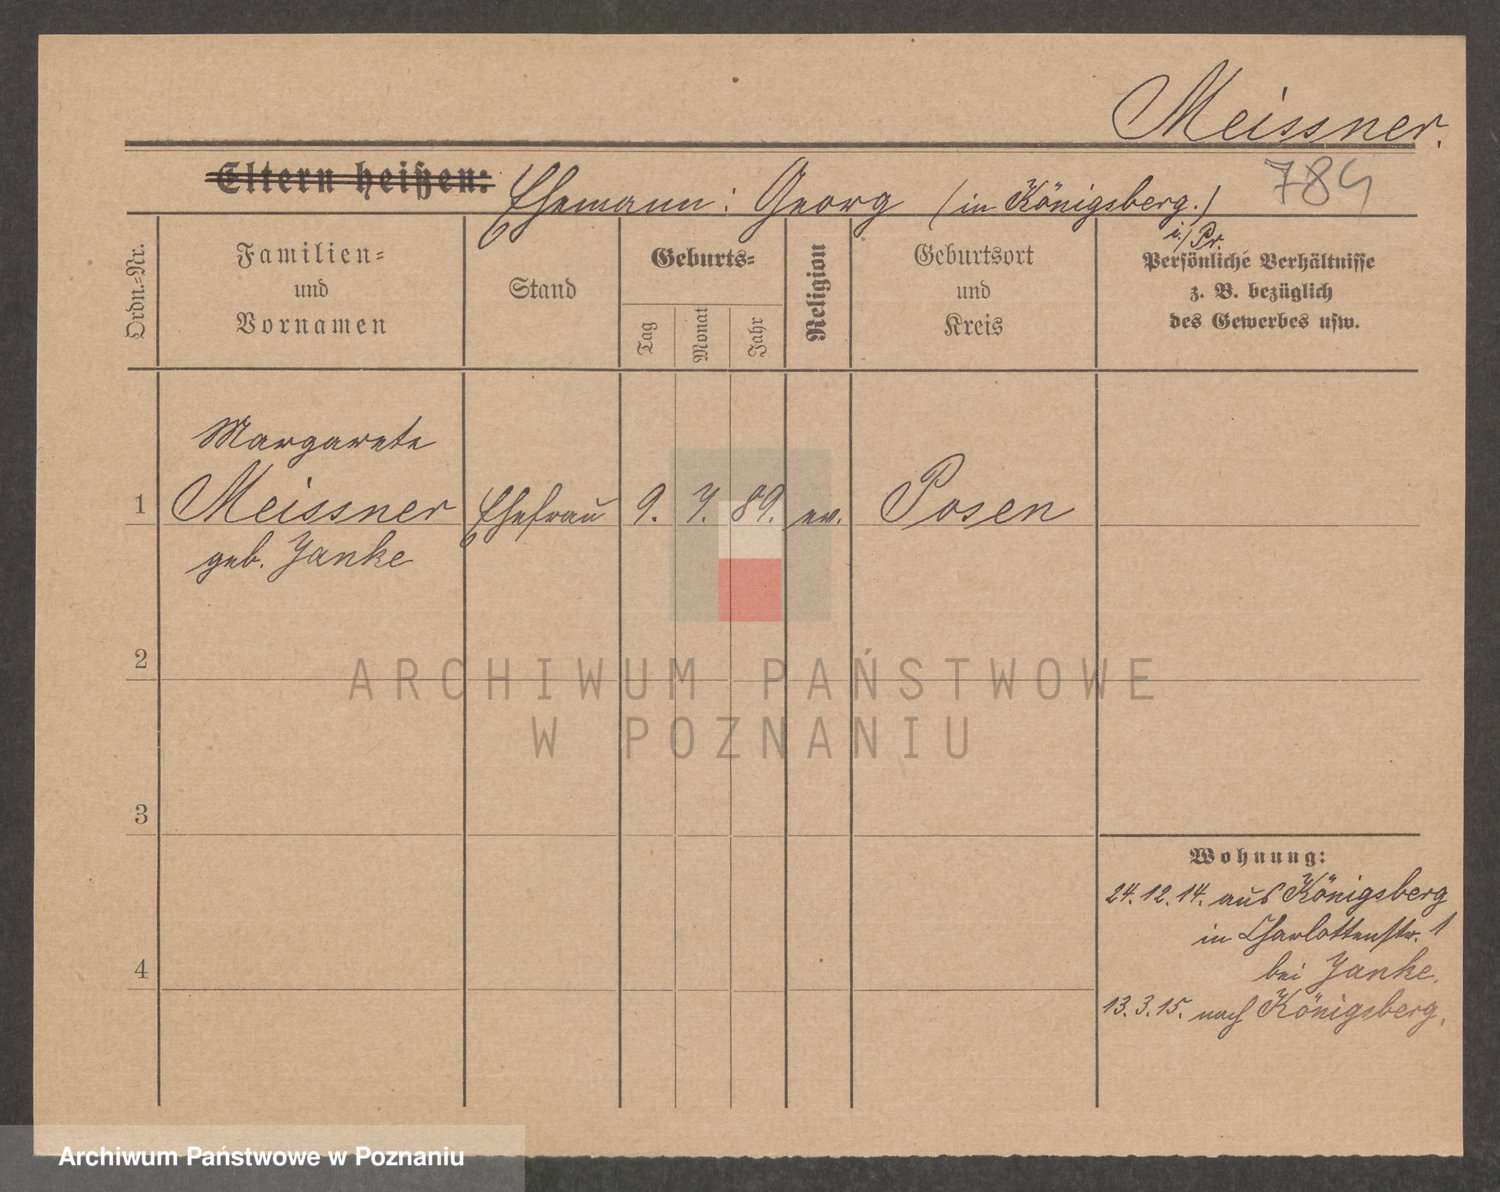 Meissner.
Eltern heißen: Ehemann: Georg (in Königsberg.)
i./Pr.
784
Ordn.-Nr.
Familien-
und
Vornamen
Stand
Geburts-
Tag
Monat
Jahr
Religion
Geburtsort
und
Kreis
Persönliche Verhältnisse
z. B. bezüglich
des Gewerbes usw.
Margarete
1 Meissner Ehefrau 9. 7. 89. ev. Posen
geb. Janke
2
3
4
Wohnung:
24.12.14. aus Königsberg
in Charlottenstr. 1
bei Janke.
13.3.15. nach Königsberg.
ARCHIWUM PAŃSTWOWE
W POZNANIU
Archiwum Państwowe w Poznaniu